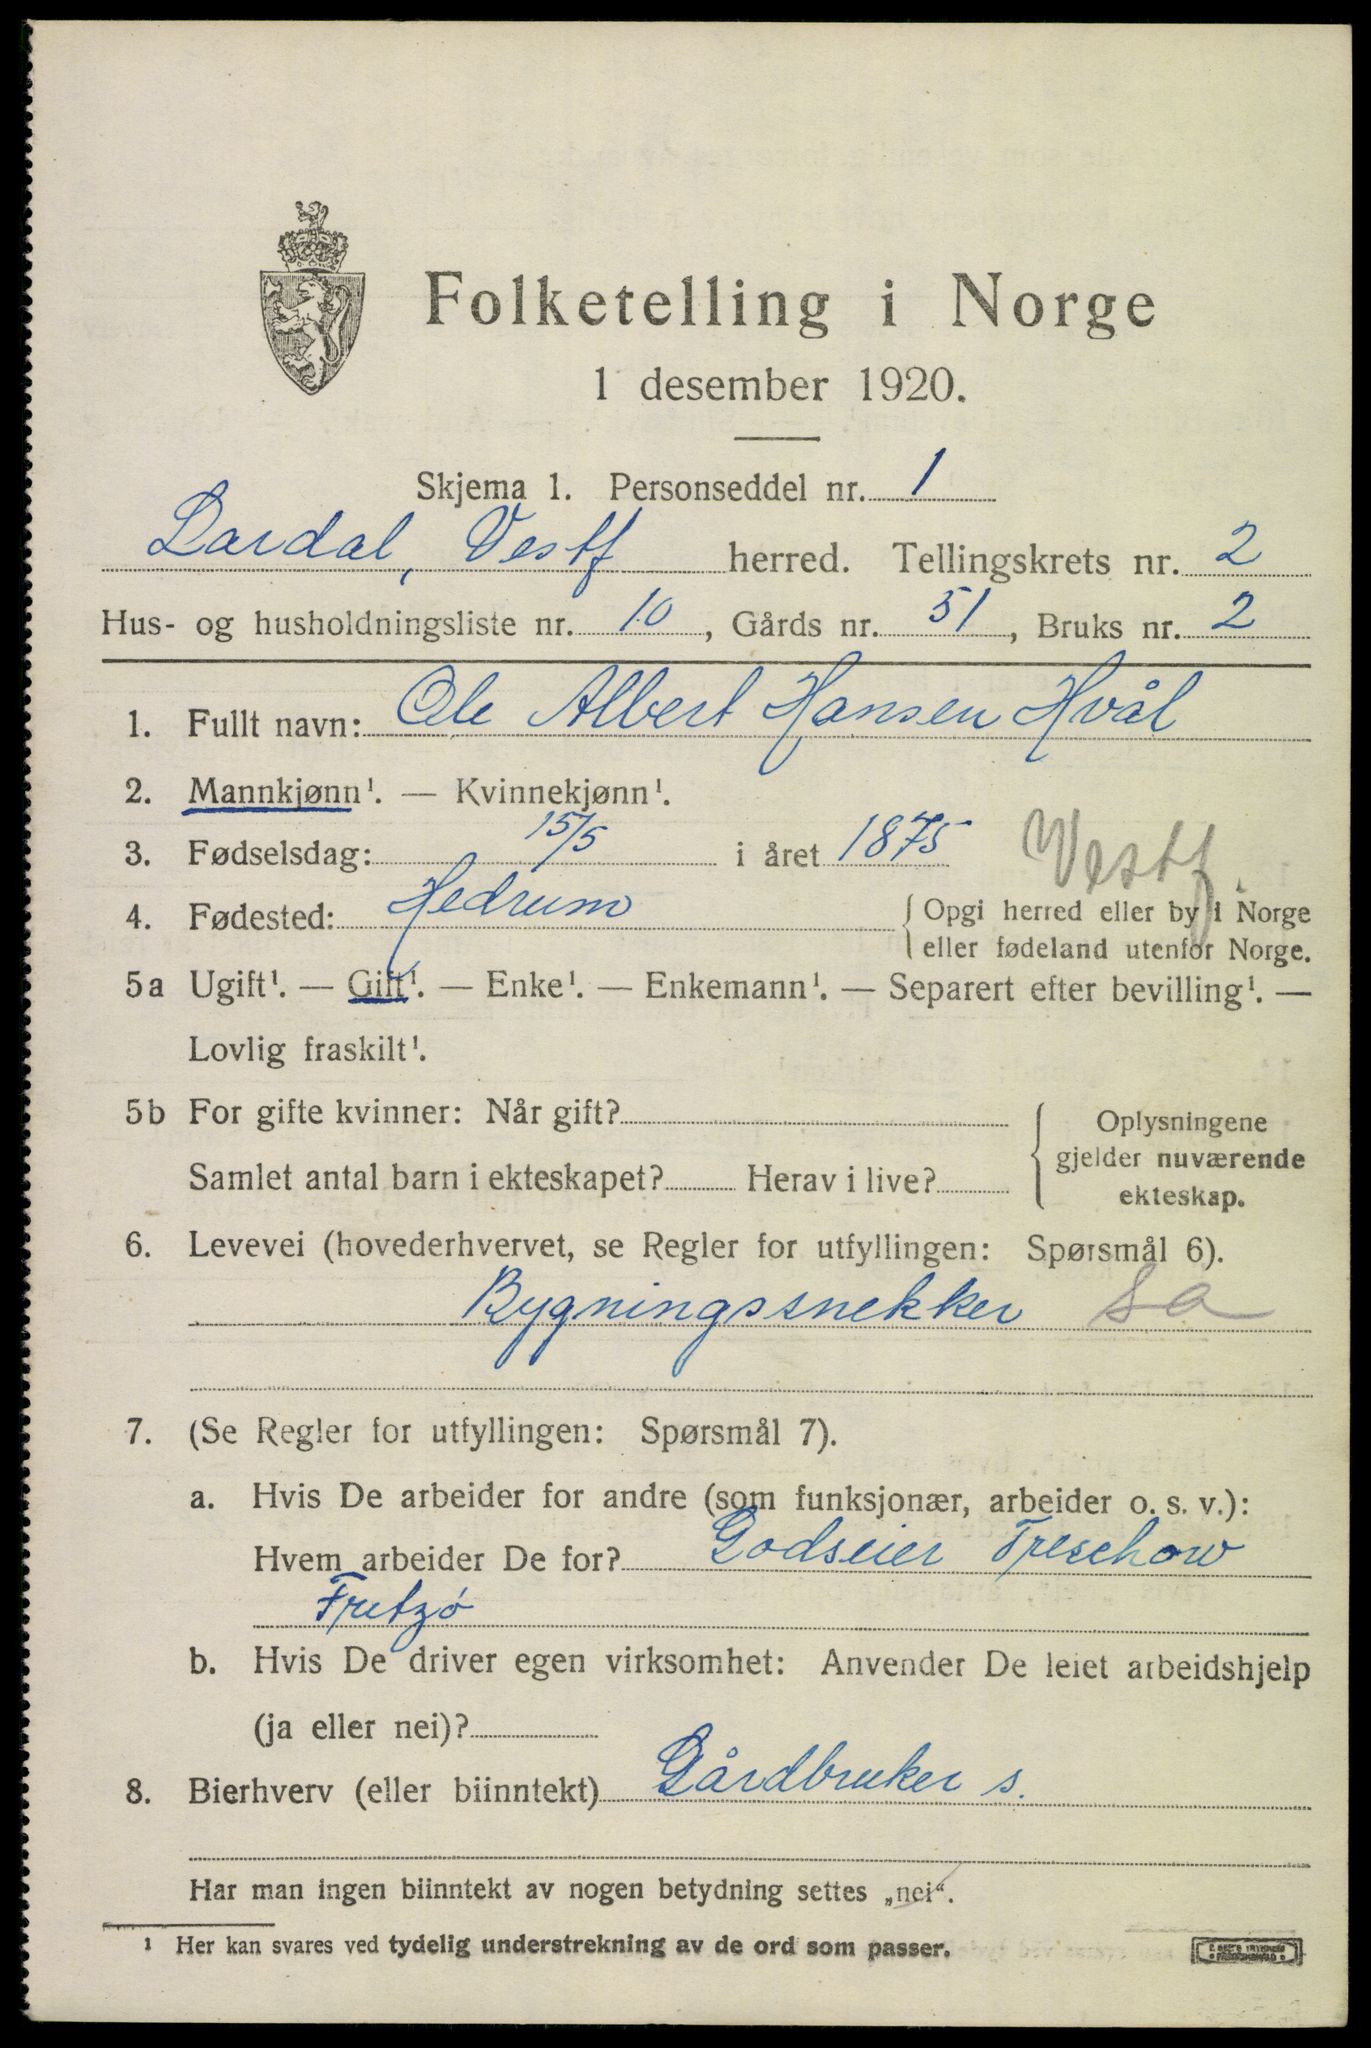 Folketelling i Norge
1 desember 1920.
Skjema 1. Personseddel nr. 1
Lardal, Vestf herred. Tellingskrets nr. 2
Hus- og husholdningsliste nr. 10, Gårds nr. 51, Bruks nr. 2
1. Fullt navn: Ole Albert Hansen Hvål
2. Mannkjønn¹. — Kvinnekjønn¹.
3. Fødselsdag: 15/5 i året 1875
Vestf
4. Fødested: Hedrum {Opgi herred eller by i Norge
eller fødeland utenfor Norge.
5a Ugift¹. — Gift¹. — Enke¹. — Enkemann¹. — Separert efter bevilling¹. —
Lovlig fraskilt¹.
5b For gifte kvinner: Når gift?
Samlet antal barn i ekteskapet? Herav i live?
Oplysningene
gjelder nuværende
ekteskap.
6. Levevei (hovederhvervet, se Regler for utfyllingen: Spørsmål 6).
Bygningssnekker Sa
7. (Se Regler for utfyllingen: Spørsmål 7).
a. Hvis De arbeider for andre (som funksjonær, arbeider o. s. v.):
Hvem arbeider De for? Godseier Treschow
Fritzø
b. Hvis De driver egen virksomhet: Anvender De leiet arbeidshjelp
(ja eller nei)?
8. Bierhverv (eller biinntekt) Gårdbruker s.
Har man ingen biinntekt av nogen betydning settes „nei“.
¹ Her kan svares ved tydelig understrekning av de ord som passer.